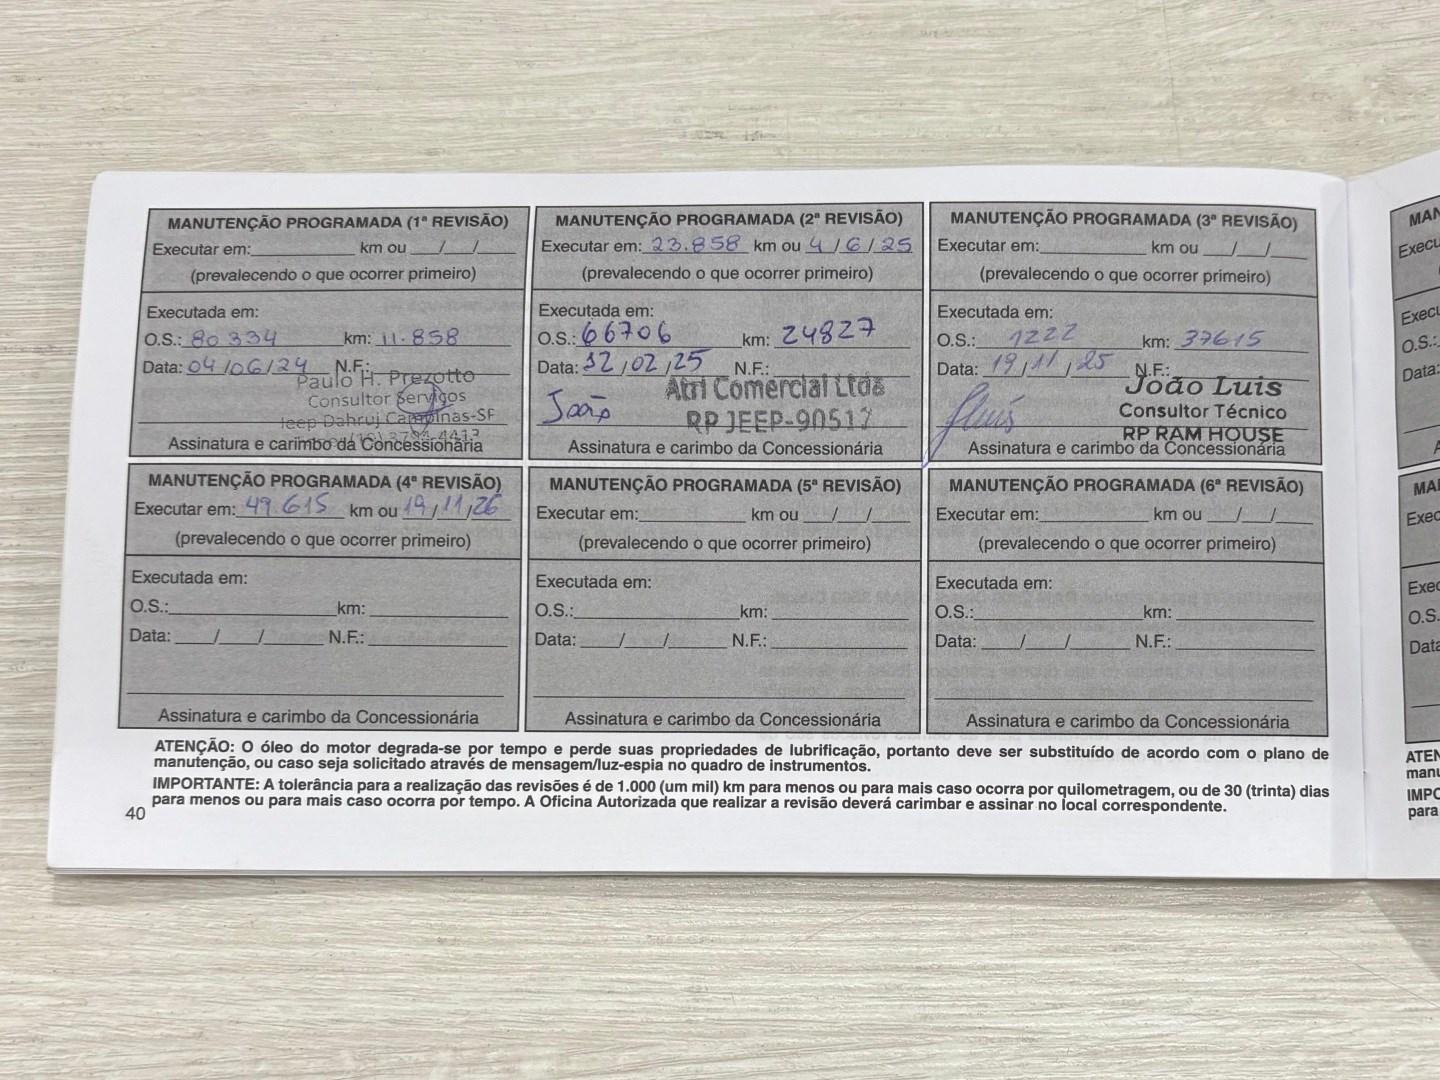 MANUTENÇÃO PROGRAMADA (1ª REVISÃO)
Executar em: km ou / /
(prevalecendo o que ocorrer primeiro)
Executada em:
O.S.: 80334 km: 11.858
Data: 04/06/24 N.F.:
Paulo H. Prezotto
Consultor Serviços
Jeep Dahruj Campinas-SF
Assinatura e carimbo da Concessionária
MANUTENÇÃO PROGRAMADA (2ª REVISÃO)
Executar em: 23.858 km ou 4/6/25
(prevalecendo o que ocorrer primeiro)
Executada em:
O.S.: 66706 km: 24827
Data: 12/02/25 N.F.:
Atri Comercial Ltda
João
RP JEEP-90517
Assinatura e carimbo da Concessionária
MANUTENÇÃO PROGRAMADA (3ª REVISÃO)
Executar em: km ou / /
(prevalecendo o que ocorrer primeiro)
Executada em:
O.S.: 1222 km: 37615
Data: 19/11/25 N.F.:
João Luis
Consultor Técnico
RP RAM HOUSE
Assinatura e carimbo da Concessionária
MANUTENÇÃO PROGRAMADA (4ª REVISÃO)
Executar em: 49.615 km ou 19/11/26
(prevalecendo o que ocorrer primeiro)
Executada em:
O.S.: km:
Data: / / N.F.:
Assinatura e carimbo da Concessionária
MANUTENÇÃO PROGRAMADA (5ª REVISÃO)
Executar em: km ou / /
(prevalecendo o que ocorrer primeiro)
Executada em:
O.S.: km:
Data: / / N.F.:
Assinatura e carimbo da Concessionária
MANUTENÇÃO PROGRAMADA (6ª REVISÃO)
Executar em: km ou / /
(prevalecendo o que ocorrer primeiro)
Executada em:
O.S.: km:
Data: / / N.F.:
Assinatura e carimbo da Concessionária
ATENÇÃO: O óleo do motor degrada-se por tempo e perde suas propriedades de lubrificação, portanto deve ser substituído de acordo com o plano de
manutenção, ou caso seja solicitado através de mensagem/luz-espia no quadro de instrumentos.
IMPORTANTE: A tolerância para a realização das revisões é de 1.000 (um mil) km para menos ou para mais caso ocorra por quilometragem, ou de 30 (trinta) dias
para menos ou para mais caso ocorra por tempo. A Oficina Autorizada que realizar a revisão deverá carimbar e assinar no local correspondente.
40